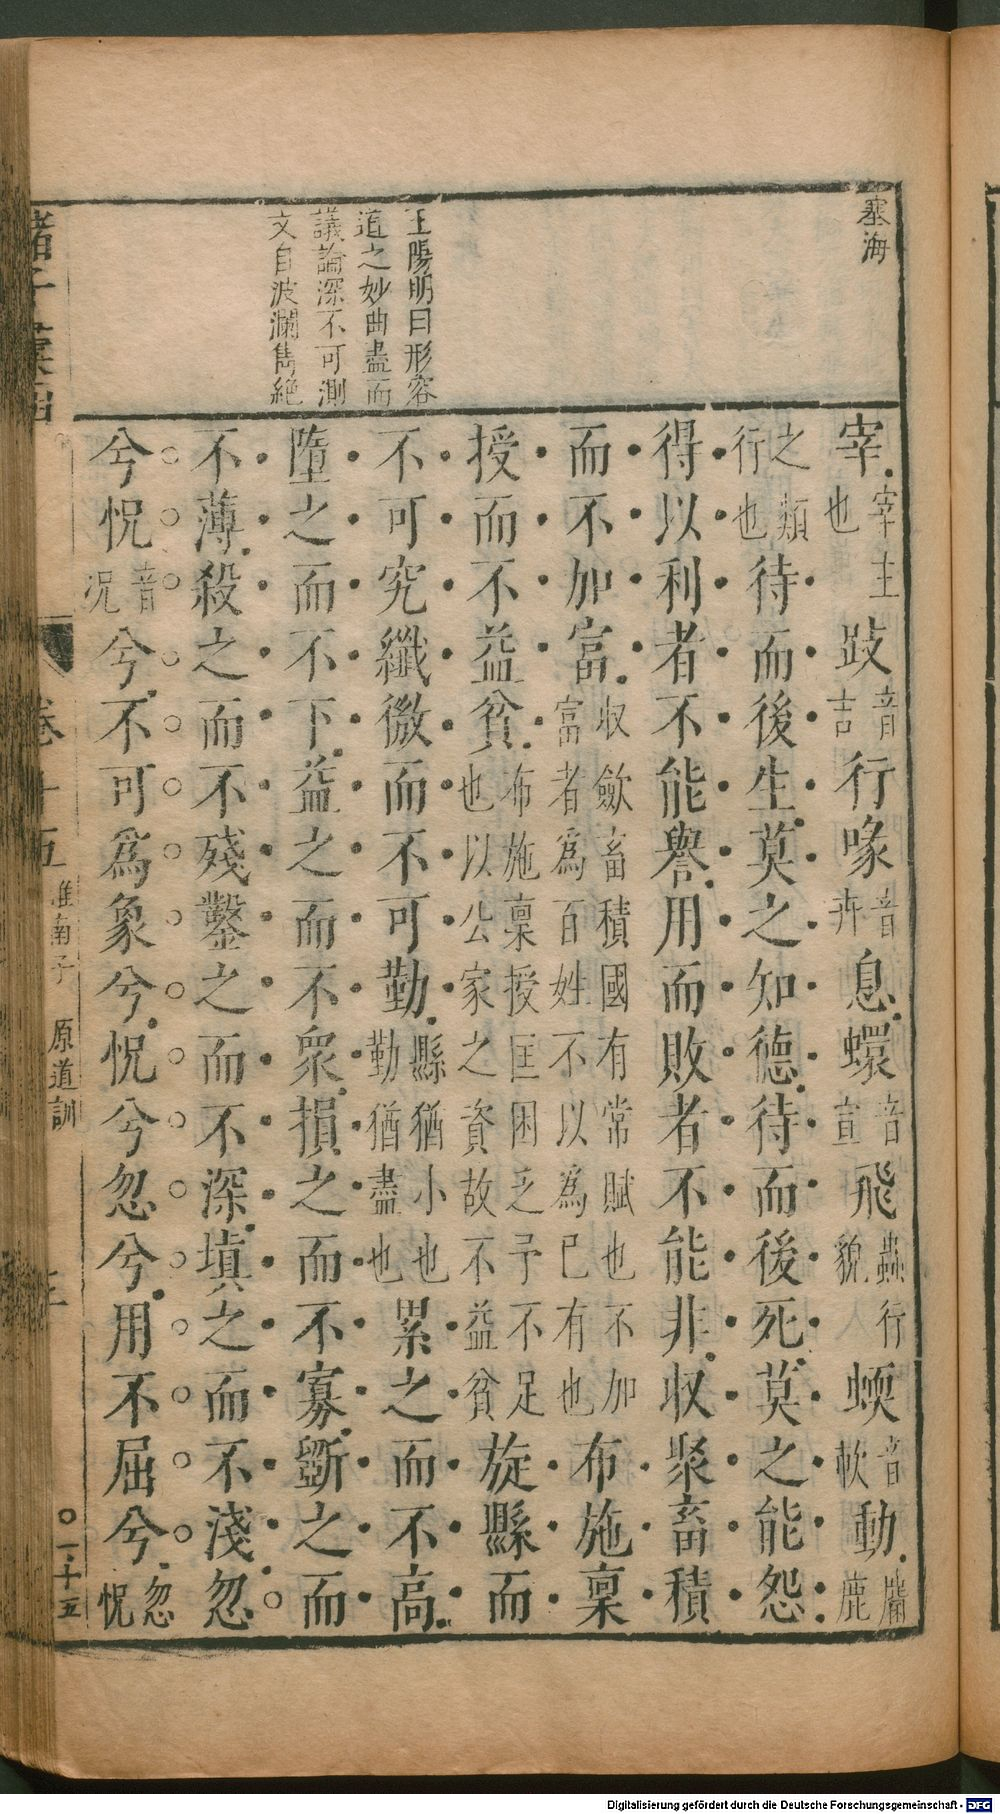 塞海
王陽明曰形容
道之妙曲盡而
議論深不可測
文自波瀾雋絶
宰宰主也跂音吉行喙音卉息蠉音宣飛蟲行貌蝡音軟動麛鹿
之類行也待而後生莫之知德待而後死莫之能怨
得以利者不能譽用而敗者不能非収聚畜積
而不加富収歛畜積國有常賦也不加富者為百姓不以為已有也布施稟
授而不益貧布施稟授匡困乏予不足也以公家之資故不益貧旋縣而
不可究纖微而不可勤縣猶小也勤猶盡也累之而不高
墮之而不下益之而不衆損之而不寡斵之而
不薄殺之而不殘鑿之而不深填之而不淺忽
兮怳音况兮不可爲象兮怳兮忽兮用不屈兮忽怳
淮南子 原道訓
一十五
Digitalisierung gefördert durch die Deutsche Forschungsgemeinschaft - DFG